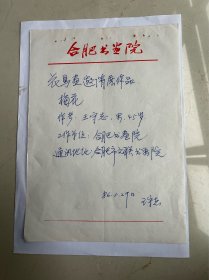 合肥书画院
花鸟画邀请展作品
梅花
作者 王守志,男,45岁
工作单位:合肥书画院
通讯地址:合肥市文联书画院
86.1.29日